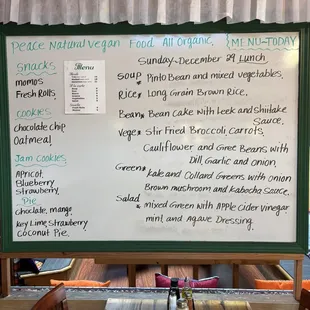 Peace Natural Vegan Food. All Organic.
MENU-TODAY
Snacks
momos
Fresh Rolls.
Cookies
Chocolate chip
Oatmeal!
Jam Cookies
Apricot,
Blueberry
Strawberry
Pie
choclate, mango
Key Lime Strawberry
Coconut Pie.
Menu
Sunday-December 29 Lunch
Soup Pinto Bean and mixed vegetables.
Rice, Long Grain Brown Rice.
Bean, Bean Cake with Leek and Shiitake
Sauce.
Vege, Stir Fried Broccoli, Carrots,
Cauliflower and Gree Beans with
Dill, Garlic and onion.
Greens, Kale and Collard Greens with onion
Brown mushroom and Kabocha sauce.
Salad, mixed Green with Apple Cider vinegar
mint and Agave Dressing.